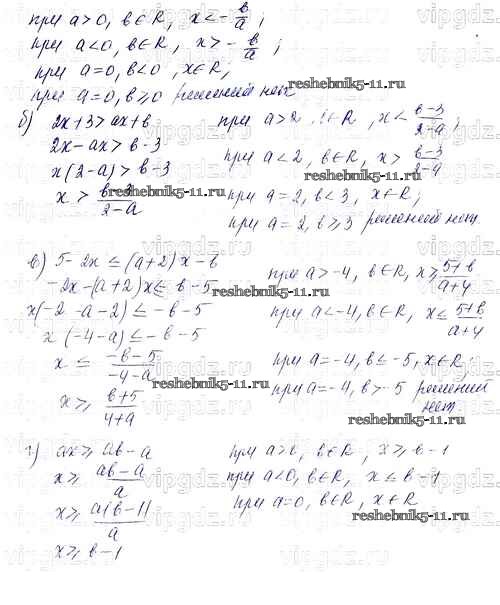 при a>0, b∈R, x<-b/a;
при a<0, b∈R, x>-b/a;
при a=0, b<0, x∈R;
при a=0, b≥0 решений нет
reshebnik5-11.ru
б) 2x+3>ax+b
2x-ax>b-3
x(2-a)>b-3
x > b-3/2-a
reshebnik5-11.ru
при a>2, b∈R, x< b-3/2-a;
при a<2, b∈R, x> b-3/2-a
при a=2, b<3, x∈R;
при a=2, b≥3 решений нет.
в) 5-2x≤(a+2)x-b
-2x-(a+2)x≤-b-5
reshebnik5-11.ru
x(-2-a-2)≤-b-5
x(-4-a)≤-b-5
x≤ -b-5/-4-a
x≥ b+5/4+a
reshebnik5-11.ru
при a>-4, b∈R, x≥ 5+b/a+4
при a<-4, b∈R, x≤ 5+b/a+4
при a=-4, b≤-5, x∈R.
при a=-4, b>-5 решений
нет.
reshebnik5-11.ru
г) ax≥ab-a
x≥ ab-a/a
x≥ a(b-1)/a
x≥b-1
при a>0, b∈R, x≥b-1
при a<0, b∈R, x≤b-1
при a=0, b∈R, x∈R
reshebnik5-11.ru
vipgdz.ru